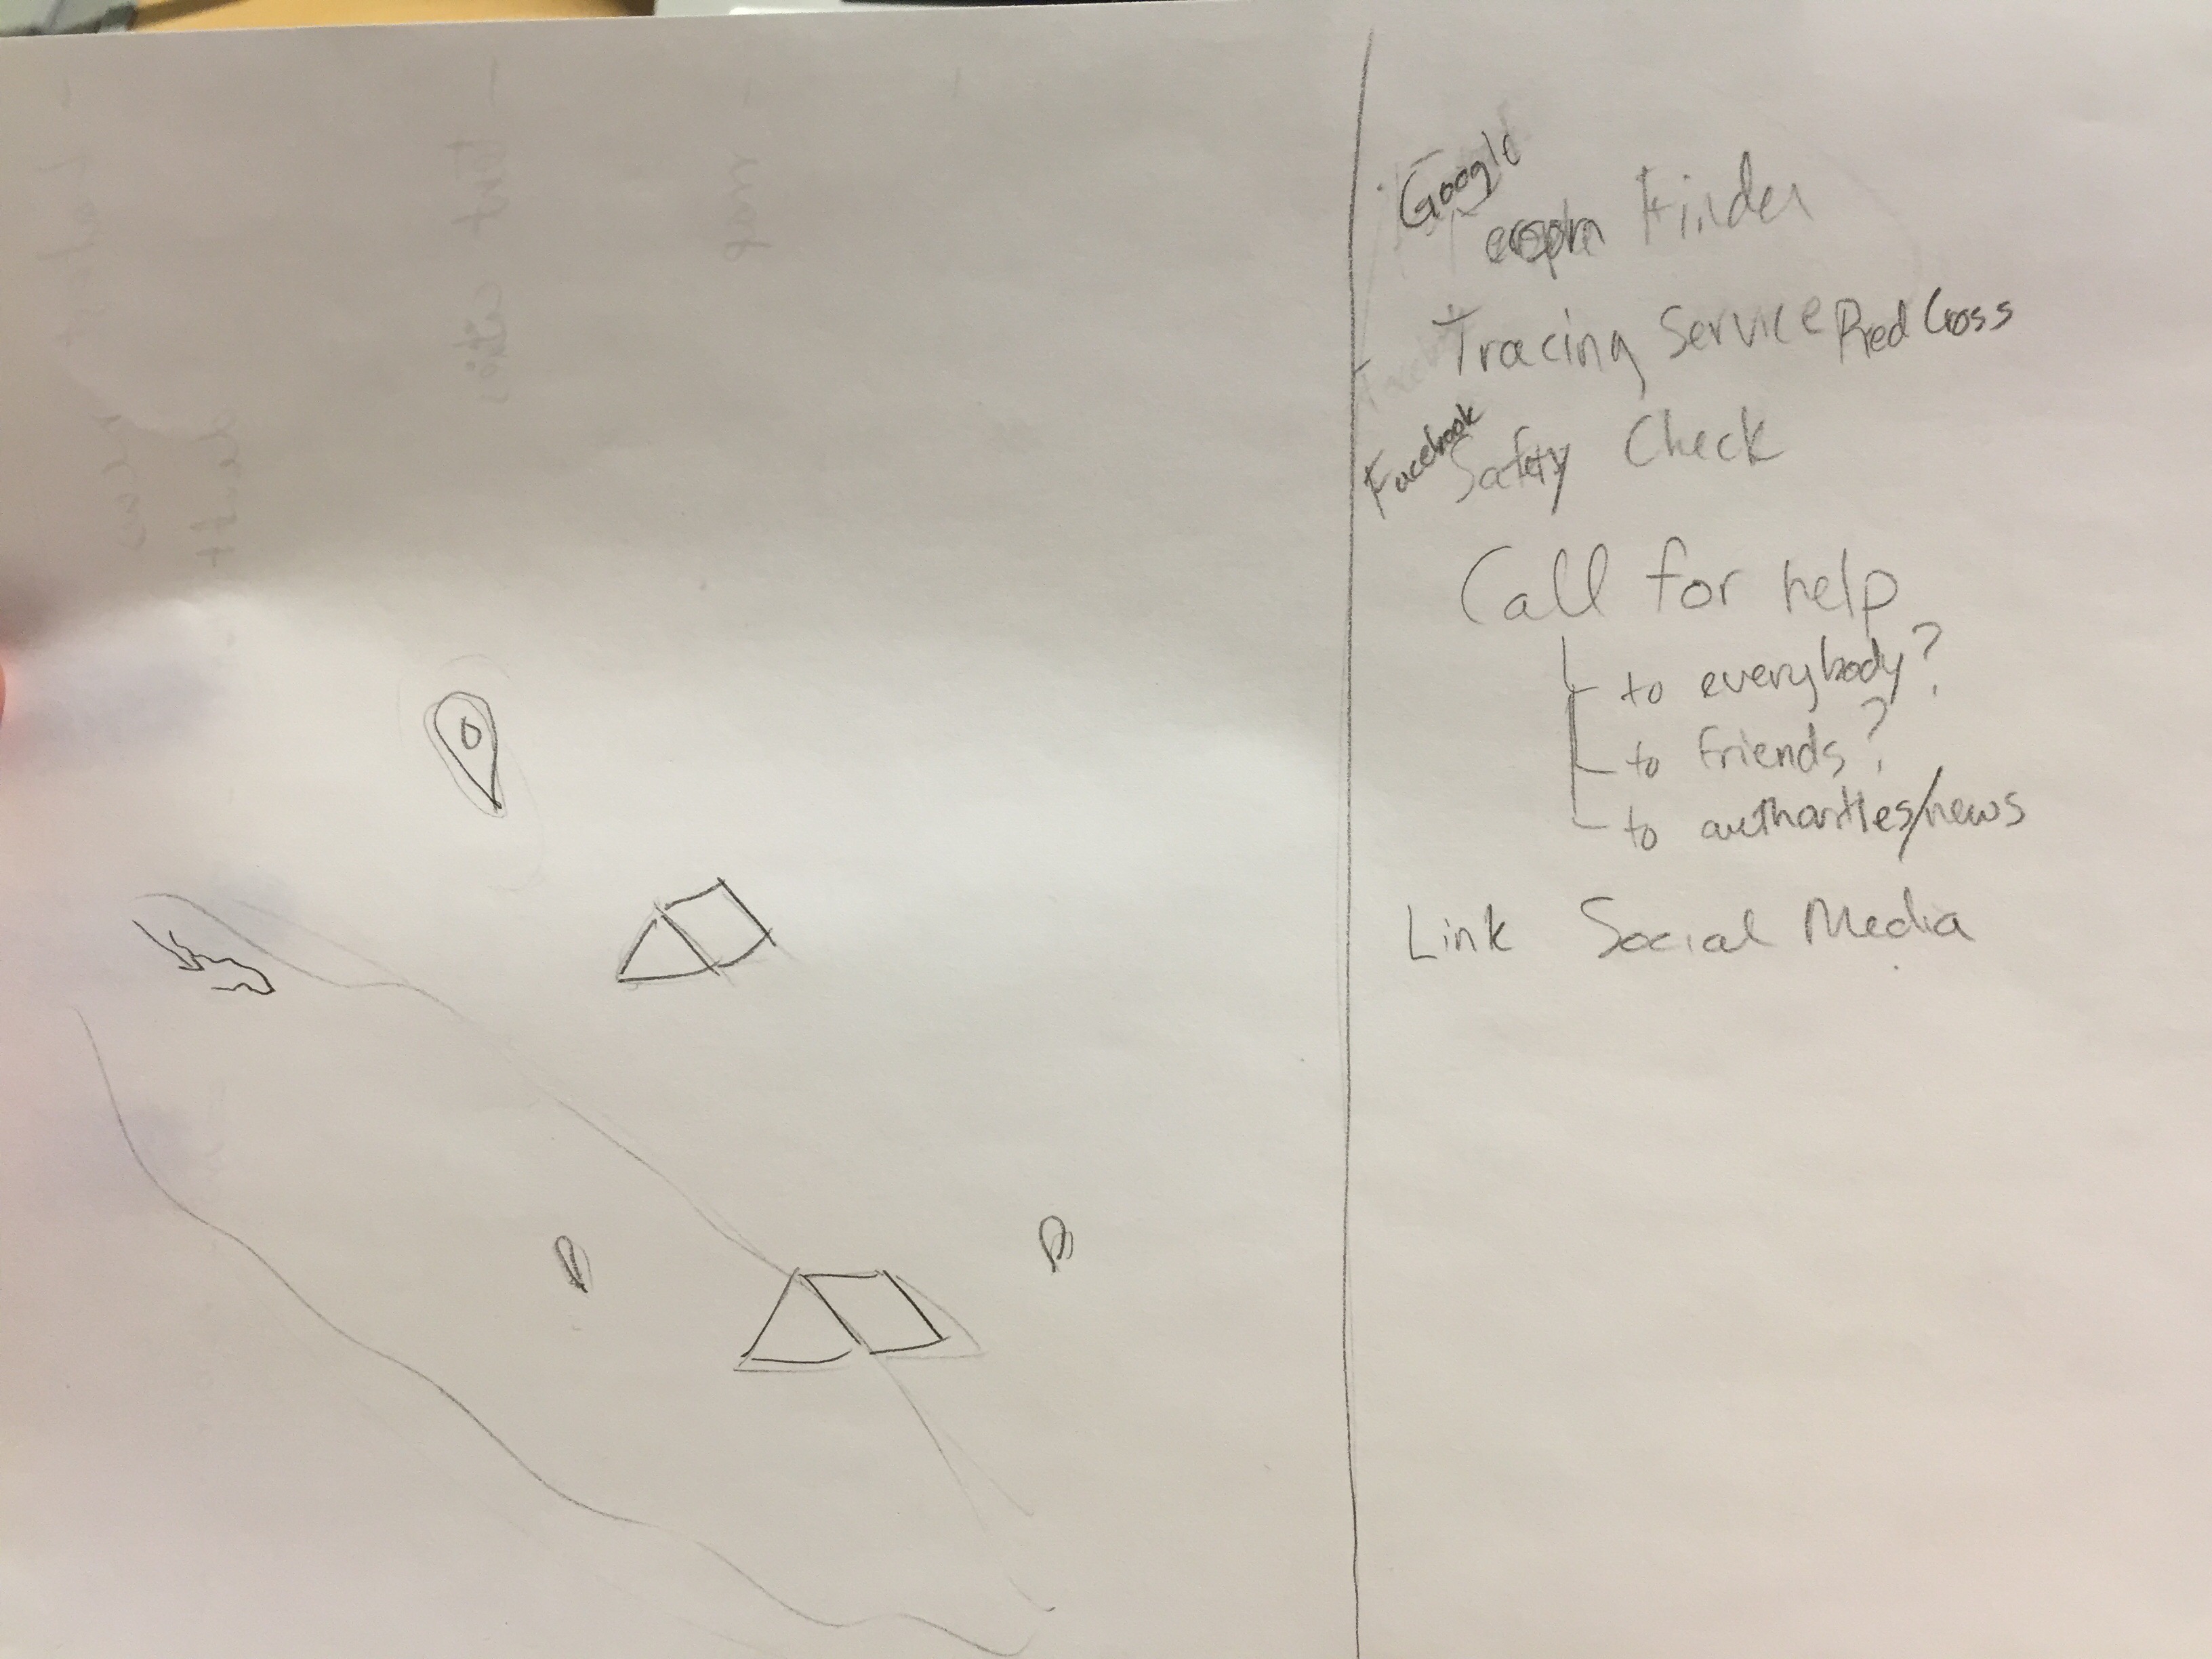 Google
Finder
Tracing Service Red Cross
Facebook
Safety Check
Call for help
to everybody?
to friends?
to authorities/news
Link Social Media